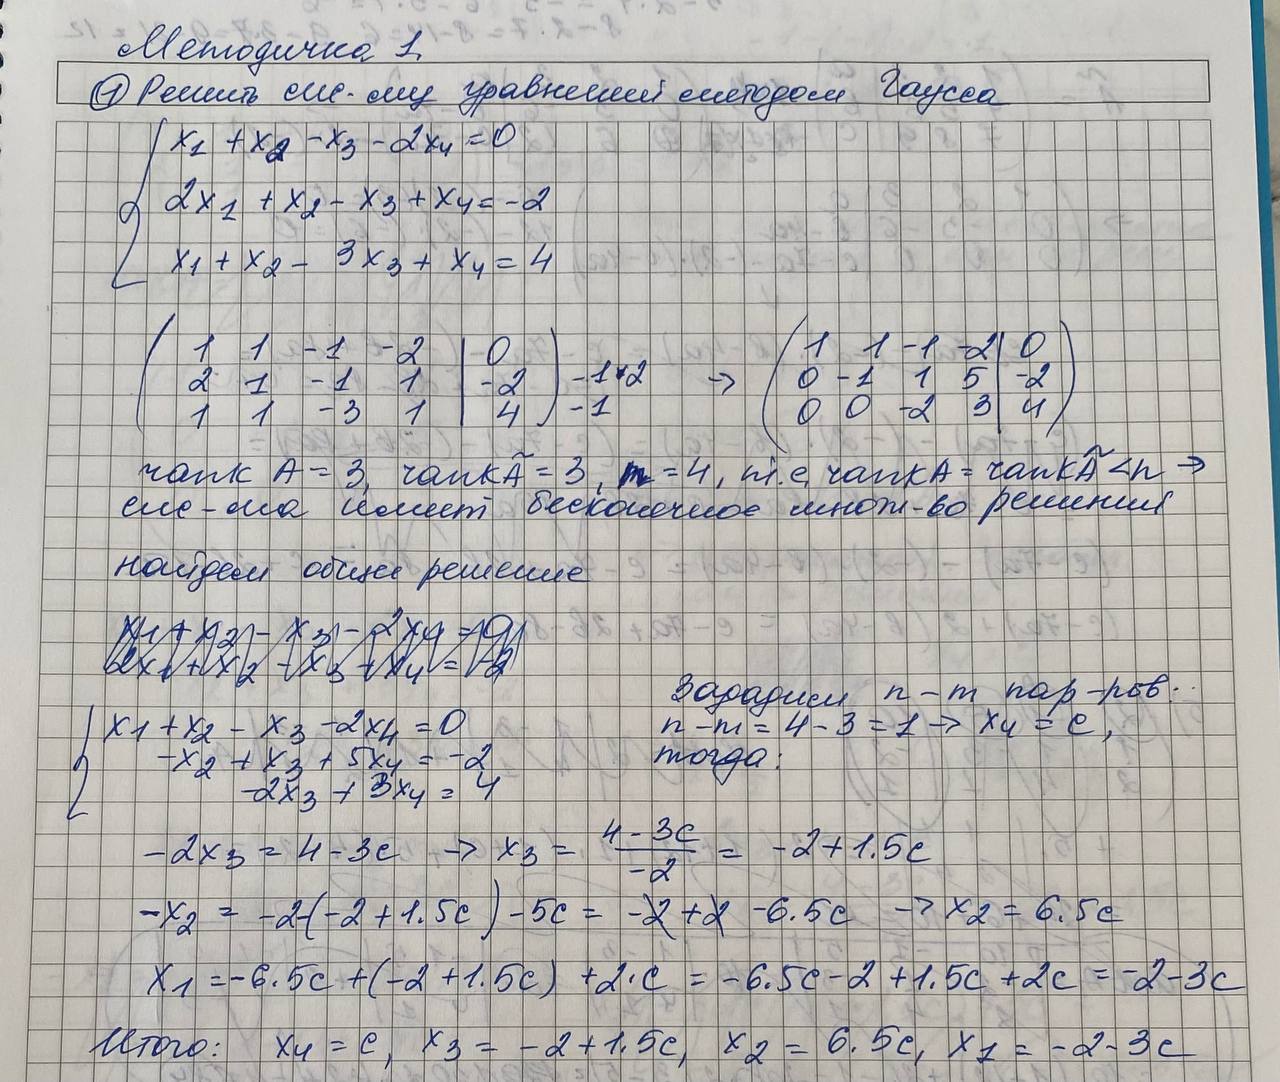 Методичка 1
① Решить сис-му уравнений методом Гаусса
x1 + x2 - x3 - 2x4 = 0
2x1 + x2 - x3 + x4 = -2
x1 + x2 - 3x3 + x4 = 4
( 1 1 -1 -2 | 0 ) → ( 1 1 -1 -2 | 0 )
( 2 1 -1 1 | -2 ) -1*2 → ( 0 -1 1 5 | -2 )
( 1 1 -3 1 | 4 ) -1 ( 0 0 -2 3 | 4 )
ранк A = 3, ранкÃ = 3, n = 4, т.е. ранкA = ранкÃ < n →
сис-ма имеет бесконечное множ-во решений
найдем общее решение
x1 + x2 - x3 - 2x4 = 0
2x1 + x2 - x3 + x4 = -2
Зададим n-m пар-ров:
x1 + x2 - x3 - 2x4 = 0 n-m = 4-3 = 1 → x4 = c,
-x2 + x3 + 5x4 = -2 тогда:
-2x3 + 3x4 = 4
-2x3 = 4-3c → x3 = (4-3c)/(-2) = -2+1.5c
-x2 = -2-(-2+1.5c)-5c = -2+2-6.5c → x2 = 6.5c
x1 = -6.5c+(-2+1.5c)+2·c = -6.5c-2+1.5c+2c = -2-3c
Итого: x4 = c, x3 = -2+1.5c, x2 = 6.5c, x1 = -2-3c